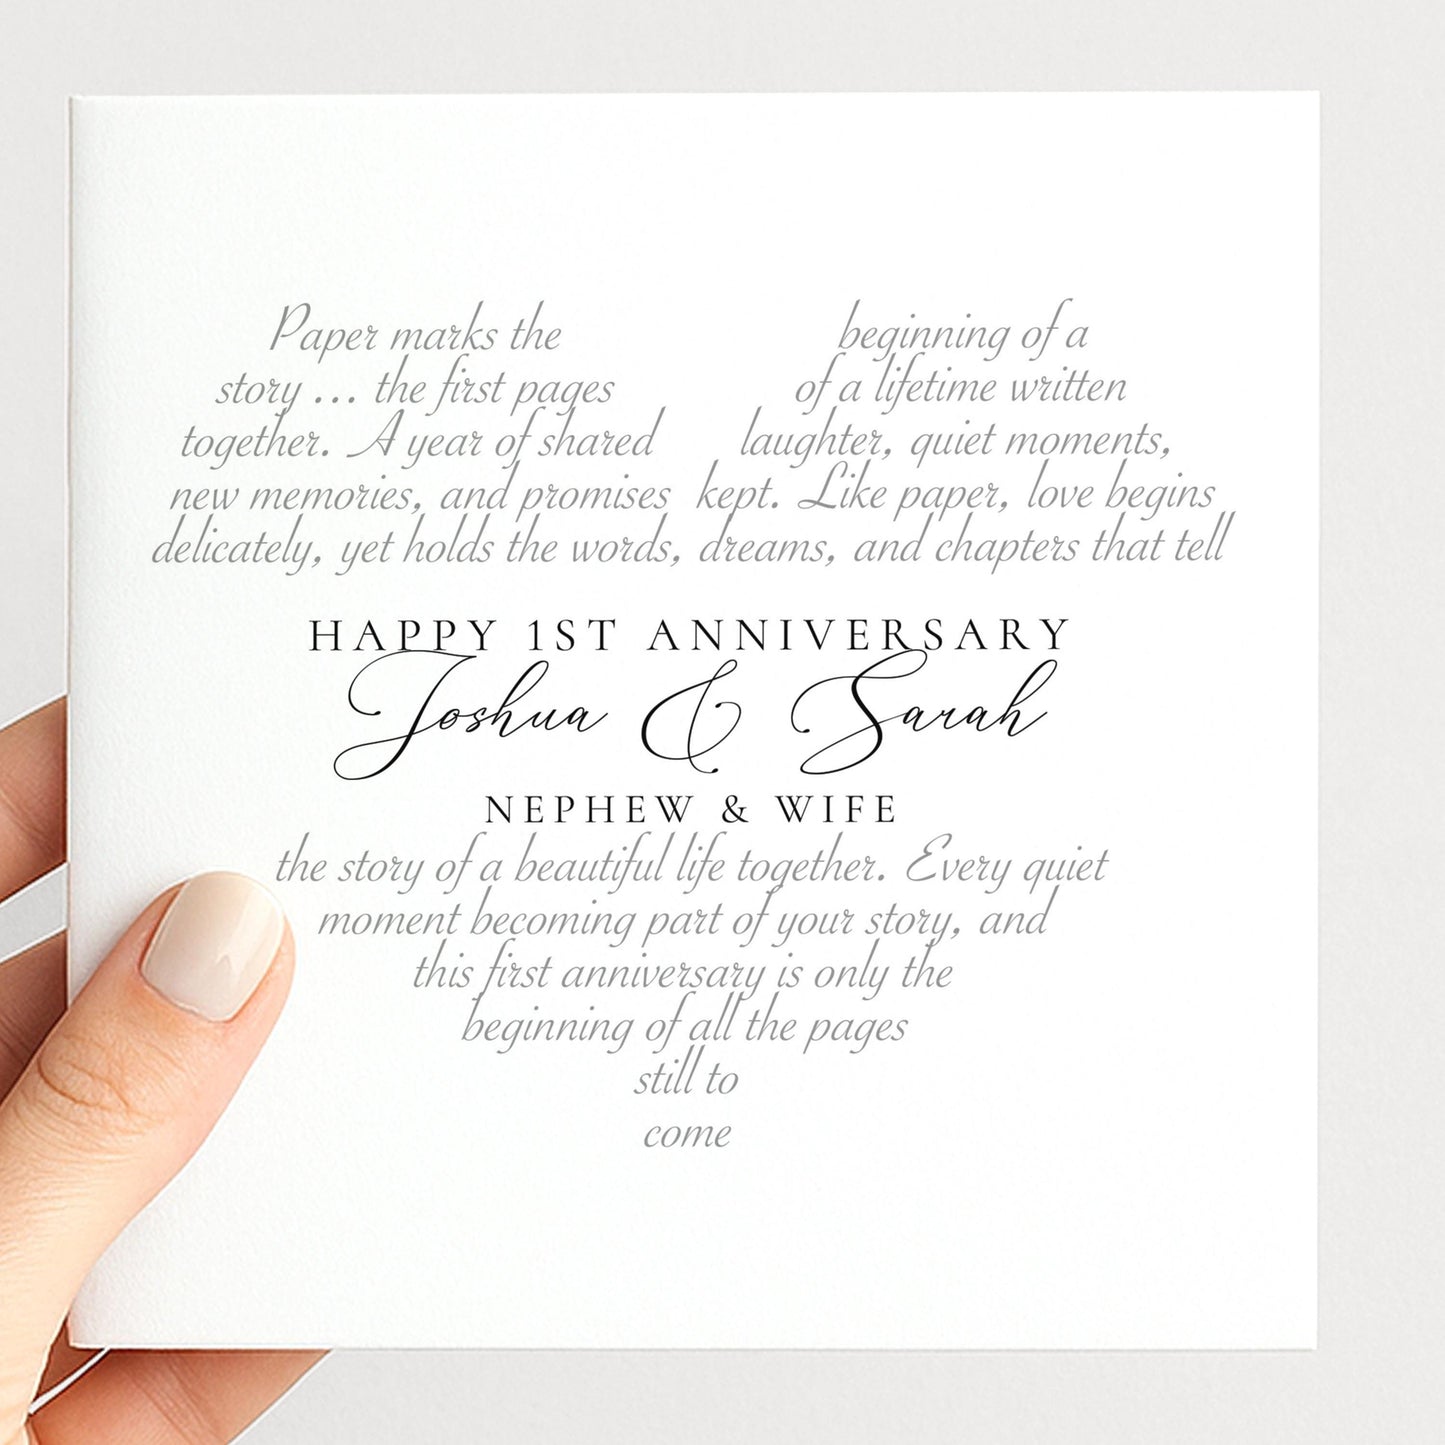 Paper marks the beginning of a
story ... the first pages of a lifetime written
together. A year of shared laughter, quiet moments,
new memories, and promises kept. Like paper, love begins
delicately, yet holds the words, dreams, and chapters that tell
HAPPY 1ST ANNIVERSARY
Joshua & Sarah
NEPHEW & WIFE
the story of a beautiful life together. Every quiet
moment becoming part of your story, and
this first anniversary is only the
beginning of all the pages
still to
come